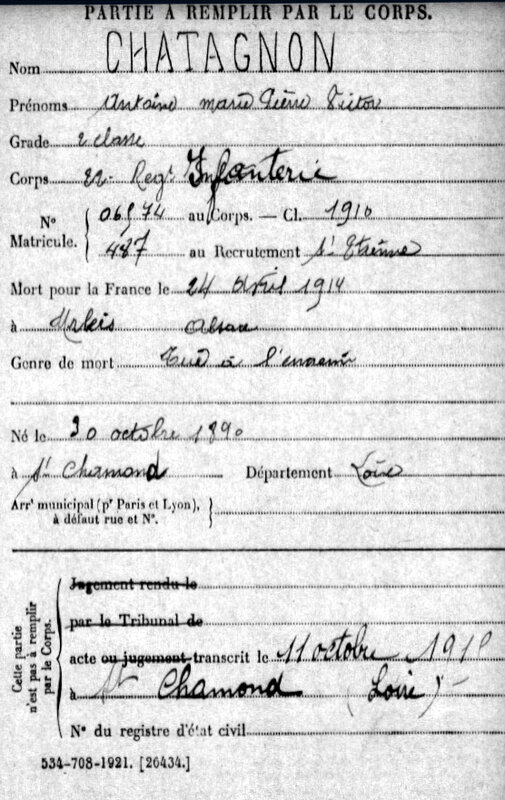 PARTIE À REMPLIR PAR LE CORPS.
Nom CHATAGNON
Prénoms Antoine marie Pierre Victor
Grade 2 classe
Corps 22e Regt Infanterie
N° Matricule. { 06574 au Corps. — Cl. 1910
487 au Recrutement St Etienne
Mort pour la France le 24 Avril 1914
à Alsace
Genre de mort Tué à l'ennemi
Né le 30 octobre 1890
à St Chamond Département Loire
Arrt municipal (pr Paris et Lyon), à défaut rue et N°. }
Cette partie n'est pas à remplir par le Corps.
Jugement rendu le
par le Tribunal de
acte ou jugement transcrit le 11 octobre
à St Chamond (Loire)
N° du registre d'état civil
534-708-1921. [26434.]